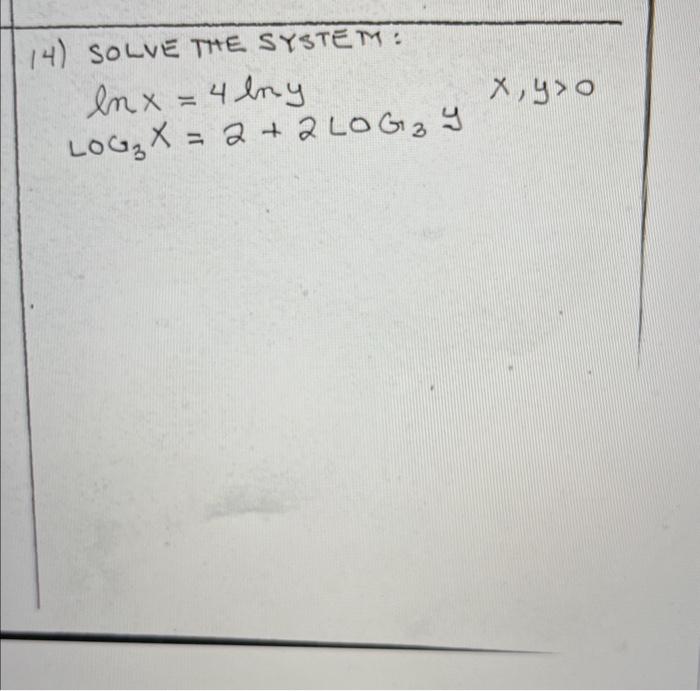 14) SOLVE THE SYSTEM:
ln x = 4 ln y    x, y > 0
LOG₃ X = 2 + 2 LOG₃ y